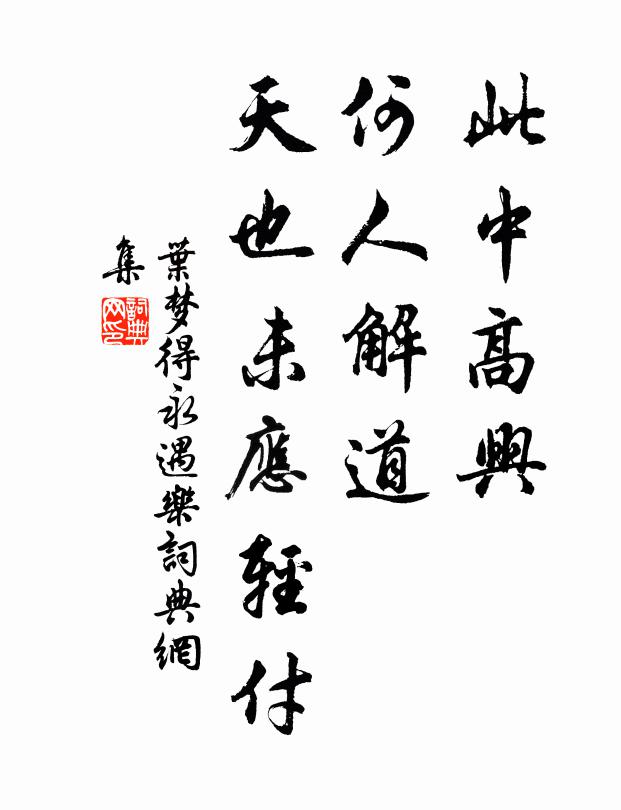 此中高興
何人解道
天也未應輕付
葉梦得永遇樂詞典網
集
詞典网印